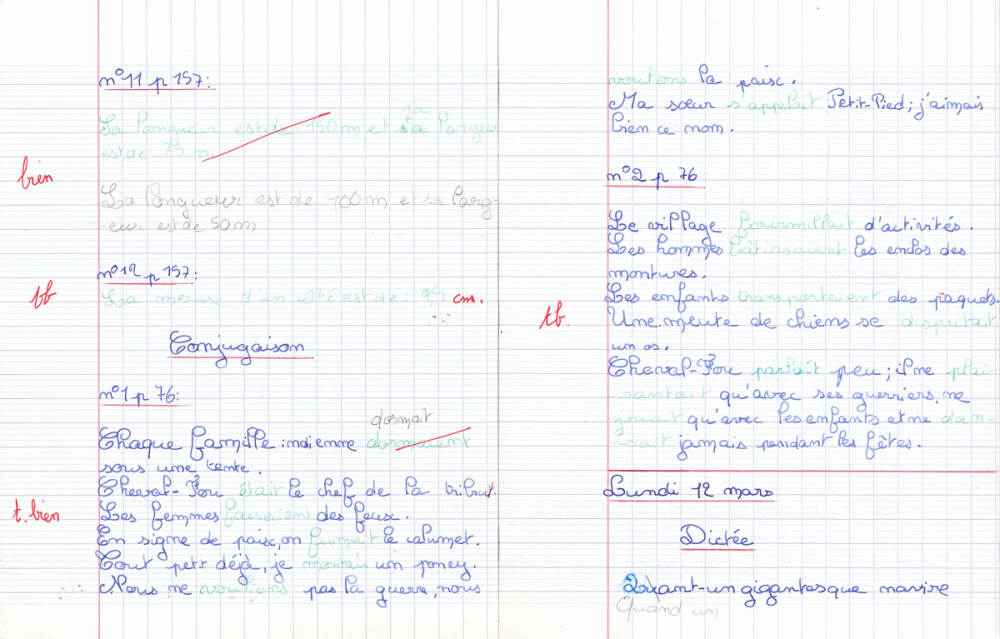 n°11 p 157:
La longueur est de 150 m et sa largeur
est de 75 m
bien
La longueur est de 100 m et sa larg-
-eur est de 50 m
n°12 p 157:
tb
La mesure d'un côté est de: 95 cm.
Conjugaison
n°1 p 76:
dormait
Chaque famille indienne dormaient
sous une tente.
Cheval-Fou était le chef de la tribut.
t. bien
Les femmes faisaient des feux.
En signe de paix, on fumait le calumet.
Tout petit déjà, je montais un poney.
Nous ne voulions pas la guerre, nous
voulions la paix.
Ma sœur s'appelait Petit-Pied; j'aimais
bien ce nom.
n°2 p 76
Le village fourmillait d'activités.
Les hommes bâtissaient les enclos des
montures.
Les enfants transportaient des paquets.
tb.
Une meute de chiens se disputait
un os.
Cheval-Fou parlait peu; il ne plai-
-santait qu'avec ses guerriers, ne
jouait qu'avec les enfants et ne dan-
-sait jamais pendant les fêtes.
Lundi 12 mars
Dictée
Quant un gigantesque navire
Quand un